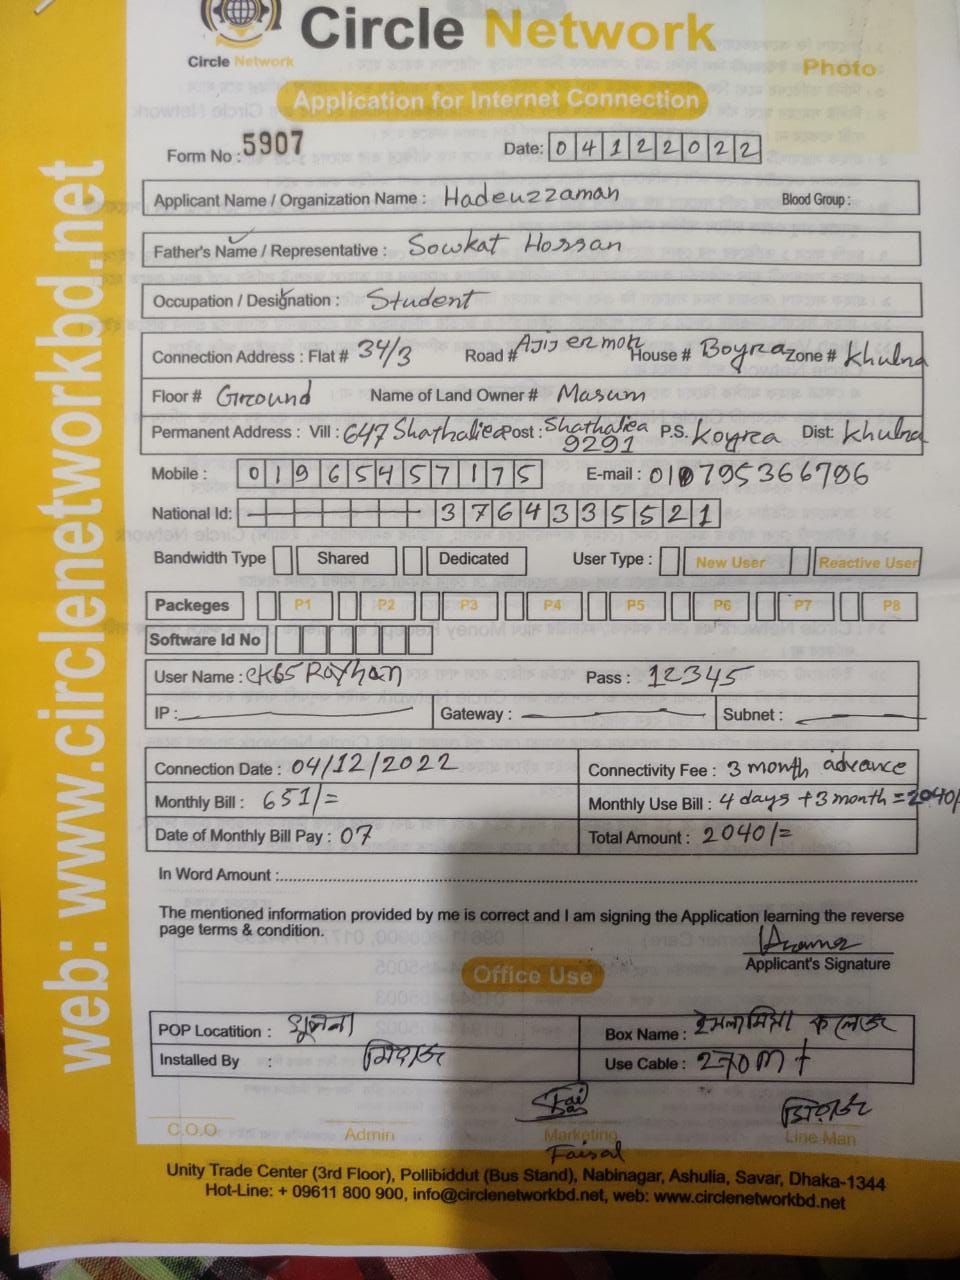 Circle Network
Circle Network
Photo
Application for Internet Connection
Form No : 5907
Date: 04122022
Applicant Name / Organization Name : Hadeuzzaman Blood Group :
Father's Name / Representative : Sowkat Hossan
Occupation / Designation : Student
Connection Address : Flat # 34/3 Road # Ajijermoh House # Boyra Zone # Khulna
Floor # Ground Name of Land Owner # Masum
Permanent Address : Vill : 647 Shathaliea Post : Shathaliea 9291 P.S. Koyra Dist: Khulna
Mobile : 01965457175 E-mail : 010795366706
National Id: 3764335521
Bandwidth Type Shared Dedicated User Type : New User Reactive User
Packeges P1 P2 P3 P4 P5 P6 P7 P8
Software Id No
User Name : ck65 Rayhan Pass : 12345
IP : Gateway : Subnet :
Connection Date : 04/12/2022 Connectivity Fee : 3 month advance
Monthly Bill : 651/= Monthly Use Bill : 4 days + 3 month = 2040/
Date of Monthly Bill Pay : 07 Total Amount : 2040/=
In Word Amount :
The mentioned information provided by me is correct and I am signing the Application learning the reverse
page terms & condition.
Applicant's Signature
Office Use
POP Locatition : খুলনা Box Name : কলেজ
Installed By : মিরাজ Use Cable : 270m
C.O.O Admin Marketing Line Man
Faisal মিরাজ
Unity Trade Center (3rd Floor), Pollibiddut (Bus Stand), Nabinagar, Ashulia, Savar, Dhaka-1344
Hot-Line: + 09611 800 900, info@circlenetworkbd.net, web: www.circlenetworkbd.net
web: www.circlenetworkbd.net